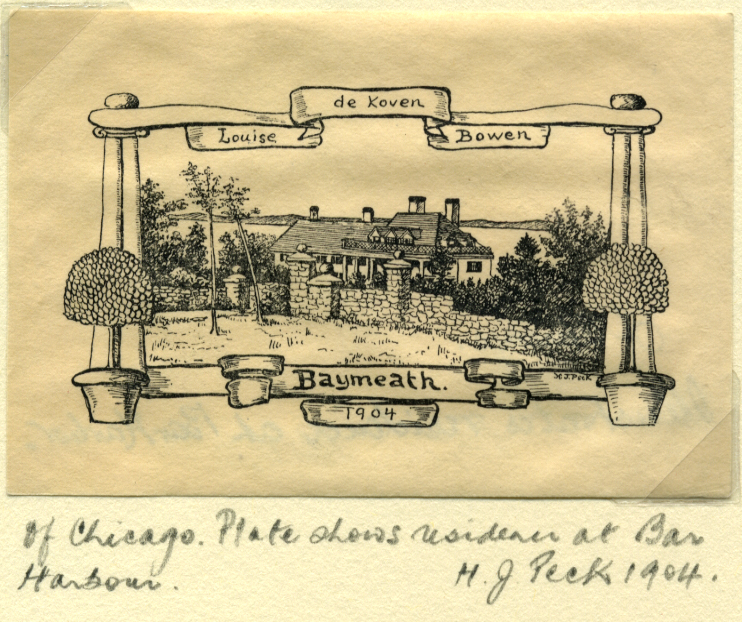 de Koven
Louise Bowen
H.J. Peck
Baymeath.
1904
Of Chicago. Plate shows residence at Bar
Harbour. H. J Peck 1904.